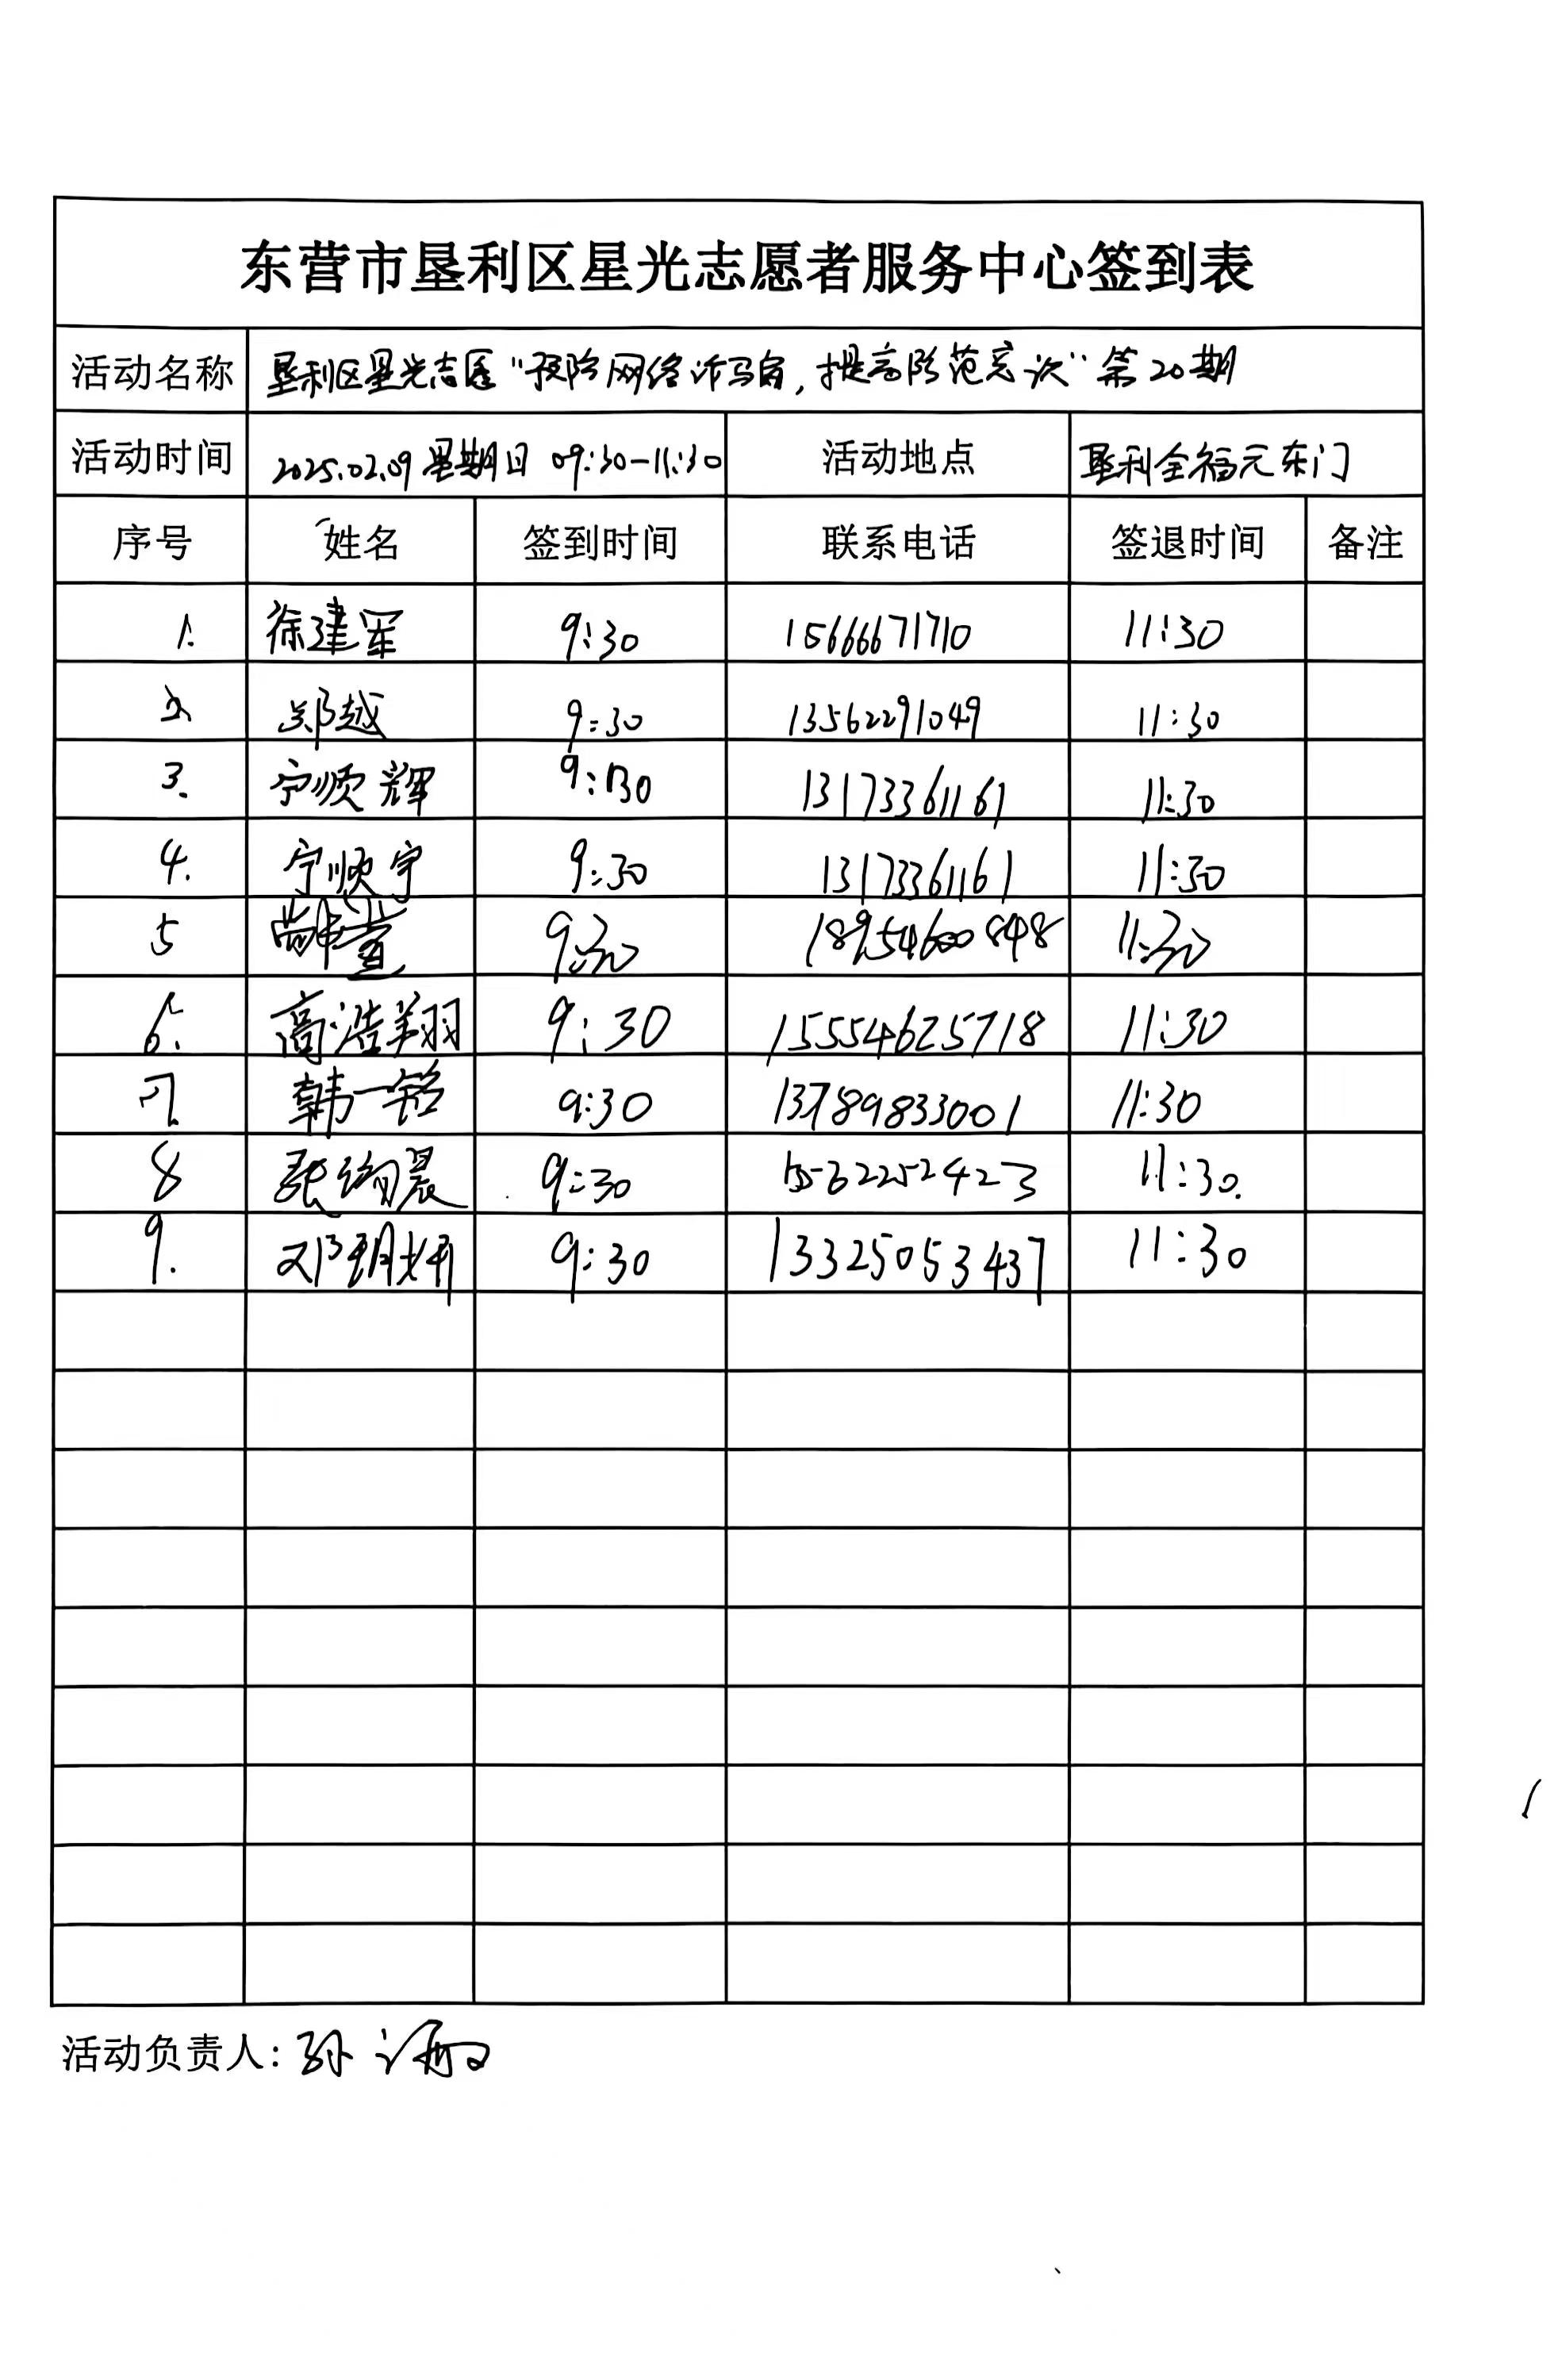 东营市垦利区星光志愿者服务中心签到表
活动名称 垦利区星光志愿“预防网络诈骗,提高防范意识”第20期
活动时间 2025.02.09 星期日 09:30-11:30 活动地点 垦利全福元东门
序号 姓名 签到时间 联系电话 签退时间 备注
1. 徐建军 9:30 15666671710 11:30
2. 郑越 9:30 13562291049 11:30
3. 宁顺辉 9:30 13173361161 11:30
4. 宁顺宇 9:30 13173361161 11:30
5 9:30 18954600848 11:30
6. 高浩翔 9:30 15554625718 11:30
7. 韩一铭 9:30 13789833001 11:30
8 张绚晨 9:30 11:30.
9. 邓玥 9:30 13325053437 11:30
活动负责人: 孙